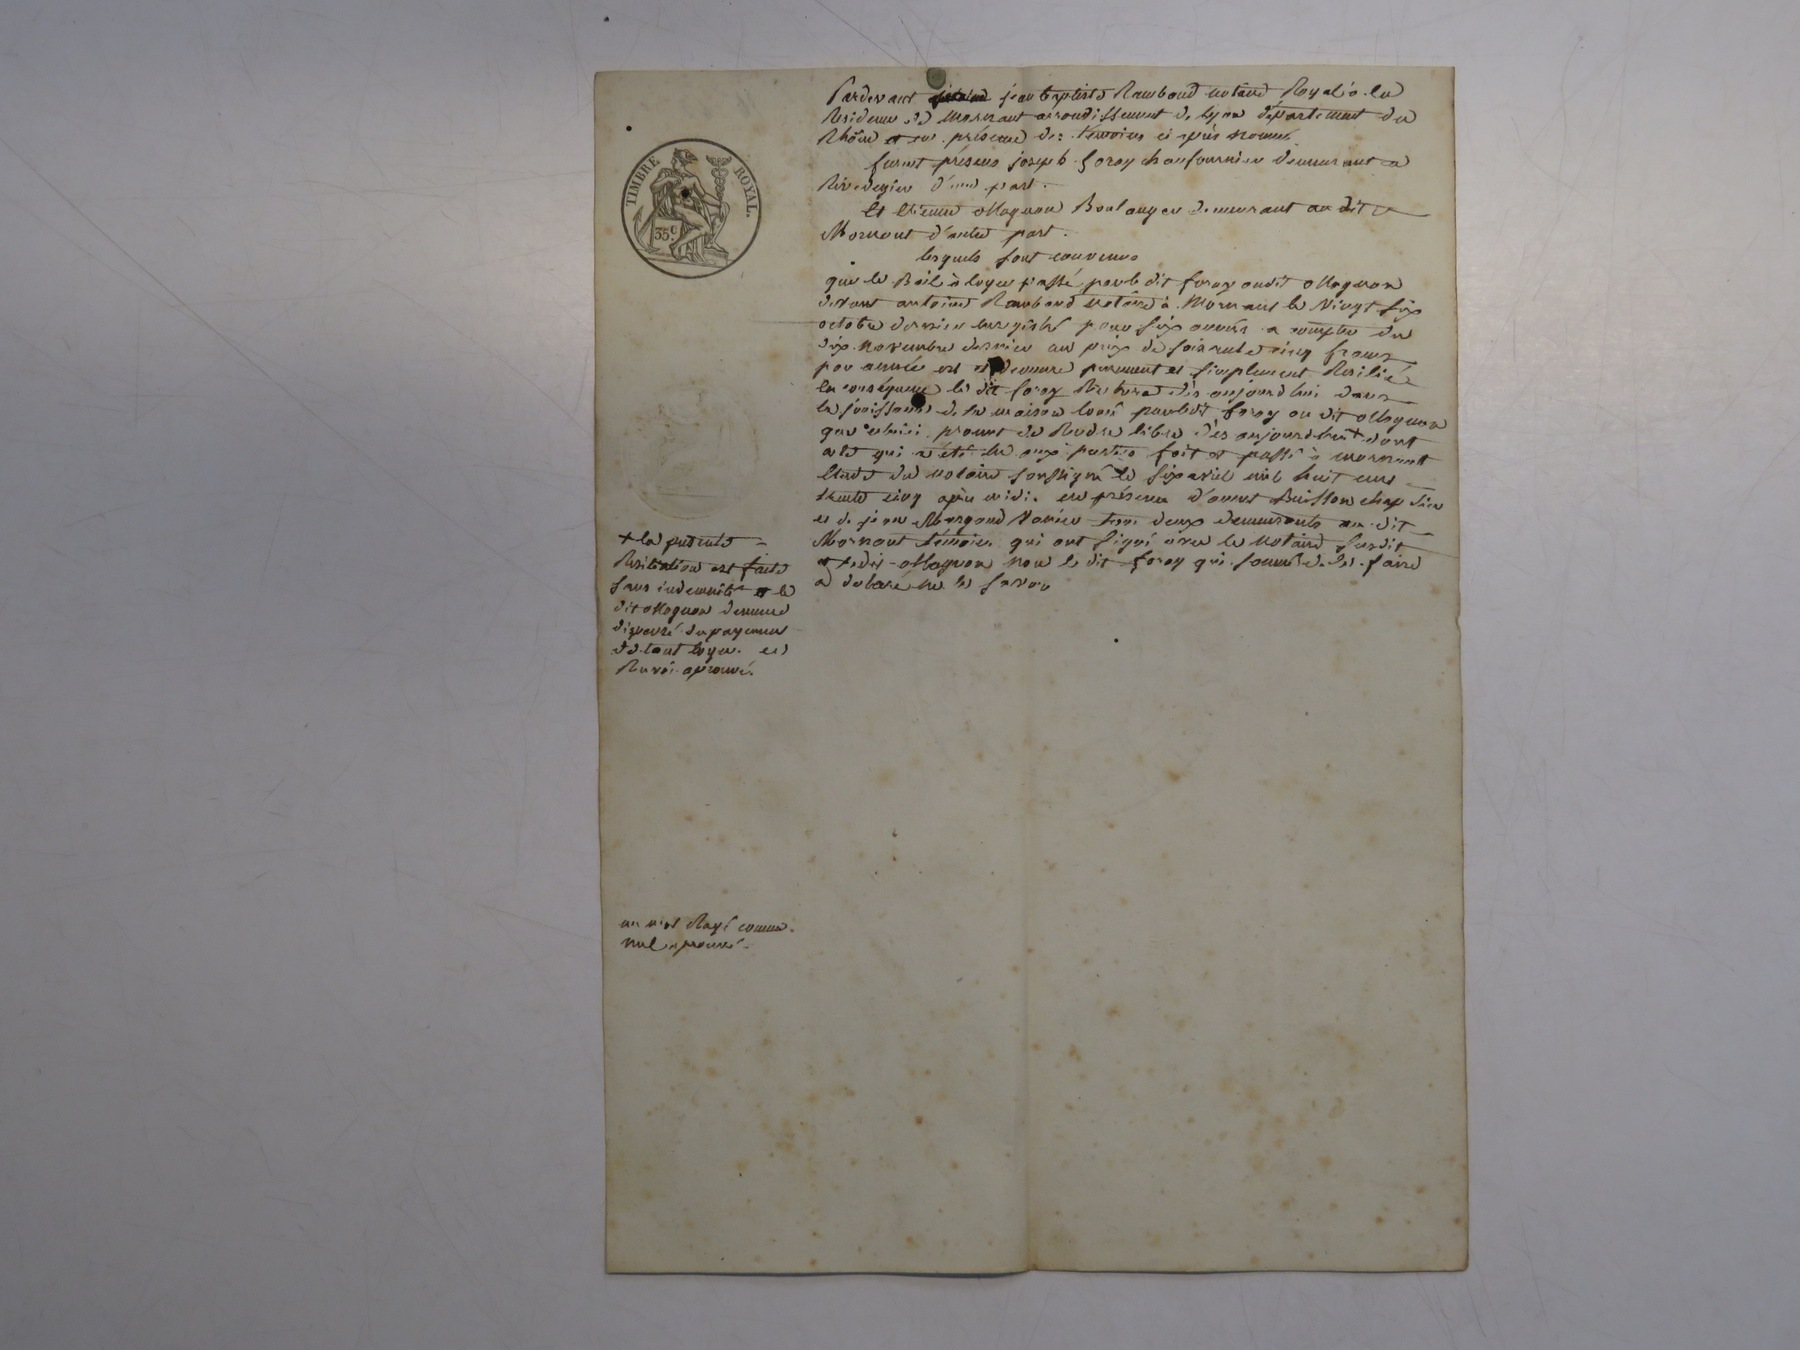 TIMBRE ROYAL.
35 c.
Pardevant jean baptiste Rambaud notaire Royal à la
Résidence de Mornant arrondissement de Lyon département du
Rhône et en présence des témoins ci après nommés
furent présens joseph foray chaufournier demeurant a
Rivedegier d'une part.
Et Etienne Magnon Boulanger demeurant au dit
Mornant d'autre part.
lesquels sont convenus
que le Bail à loyer passé par le dit foray audit Magnon
devant antoine Rambaud notaire à Mornant le Vingt six
octobre dernier enregistré pour six années a compter du
dix novembre dernier au prix de soixante cinq francs
par année est et demeure purement et simplement Resilié
en conséquence le dit foray Rentrera dès aujourd'hui dans
la jouissance de la maison louée par ledit foray au dit Magnon
que celui ci promet de Rendre libre dès aujourd'hui + dont
acte qui a été lu aux parties fait et passé à mornant
Etude du notaire soussigné le six avril mil huit cent
trente cinq après midi. en présence d'annet Buisson chapelier
et de jean Margand Tanneur tous deux demeurants au dit
Mornant témoins qui ont signé avec le notaire susdit
et ledit Magnon non le dit foray qui sommé de le faire
a declaré ne le savoir
+ la présente
Résiliation est faite
sans indemnité et le
dit Magnon demeure
dispensé du payement
de tout loyer.
Renvoi approuvé.
un mot Rayé comme
nul approuvé.